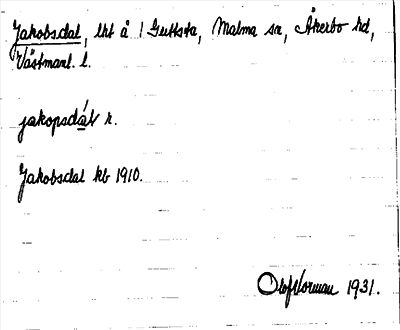 Jakobsdal, lht å 1 Guttsta, Malma sn, Åkerbo hd,
Västmanl. l.
jakopsdál r.
Jakobsdal kb 1910.
Olof Norman 1931.